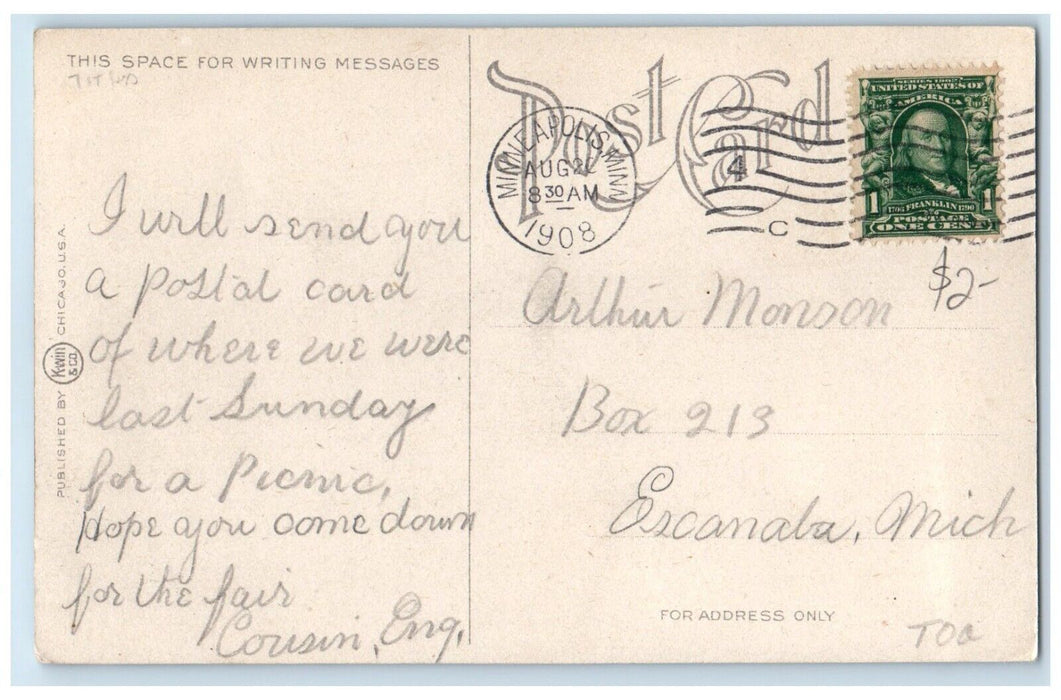 THIS SPACE FOR WRITING MESSAGES
I will send you
a postal card
of where we were
last Sunday
for a Picnic,
Hope you come down
for the fair
Cousin, Eng.
PUBLISHED BY Kwin & Co. CHICAGO. U.S.A.
Post Card
MINNEAPOLIS, MINN
AUG 2
8 30 AM
1908
4
C
SERIES 1902
UNITED STATES OF
AMERICA
1
1
1706 FRANKLIN 1790
POSTAGE
ONE CENT
$2-
Arthur Monson
Box 213
Escanaba, Mich
FOR ADDRESS ONLY